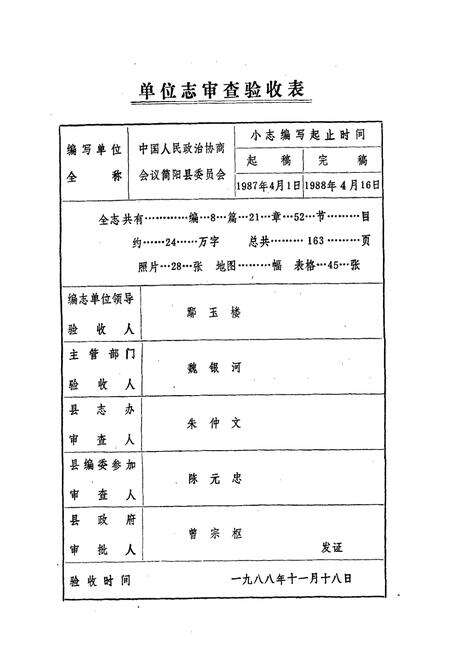 单位志审查验收表
编写单位
全称
中国人民政治协商
会议简阳县委员会
小志编写起止时间
起稿
完稿
1987年4月1日
1988年4月16日
全志共有…………编…8…篇…21…章…52…节………目
约……24……万字 总共………163…………页
照片…28…张 地图………幅 表格…45…张
编志单位领导
验收人
鄢玉楼
主管部门
验收人
魏银河
县志办
审查人
朱仲文
县编委参加
审查人
陈元忠
县政府
审批人
曾宗枢
发证
验收时间
一九八八年十一月十八日